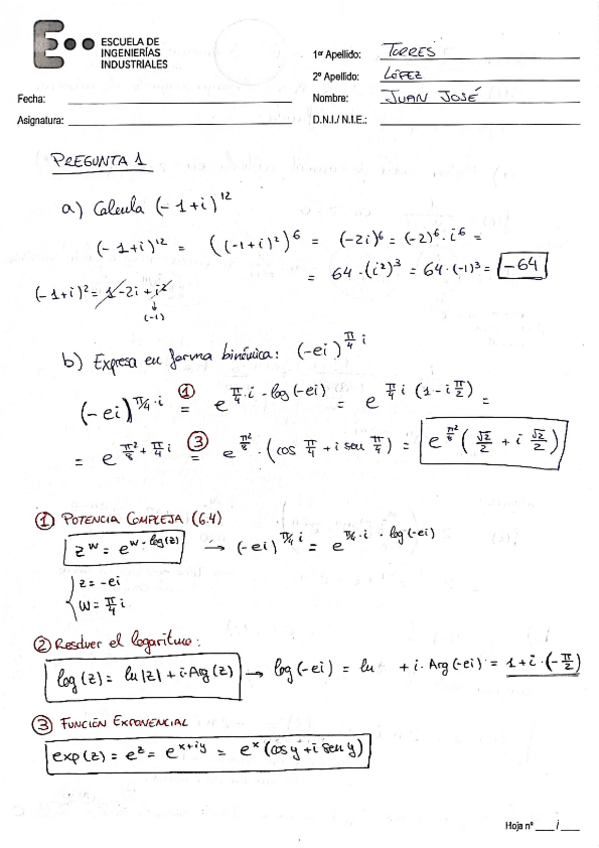 ESCUELA DE
INGENIERÍAS
INDUSTRIALES
1er Apellido: TORRES
2º Apellido: LÓPEZ
Fecha: Nombre: JUAN JOSÉ
Asignatura: D.N.I./ N.I.E.:
PREGUNTA 1
a) Calcula (-1+i)^12
(-1+i)^12 = ((-1+i)^2)^6 = (-2i)^6 = (-2)^6 · i^6 =
= 64 · (i^2)^3 = 64 · (-1)^3 = -64
(-1+i)^2 = 1 - 2i + i^2
↓
(-1)
b) Expresa en forma binómica: (-ei)^(π/4 i)
(-ei)^(π/4 · i) ①= e^(π/4 · i · log(-ei)) = e^(π/4 i (1 - i π/2)) =
= e^(π²/8 + π/4 i) ③= e^(π²/8) · (cos π/4 + i sen π/4) = e^(π²/8) (√2/2 + i √2/2)
① POTENCIA COMPLEJA (6.4)
z^w = e^(w · log(z)) → (-ei)^(π/4 i) = e^(π/4 · i · log(-ei))
z = -ei
w = π/4 i
② Resolver el logaritmo:
log(z) = ln|z| + i·Arg(z) → log(-ei) = ln + i · Arg(-ei) = 1 + i · (-π/2)
③ FUNCIÓN EXPONENCIAL
exp(z) = e^z = e^(x+iy) = e^x (cos y + i sen y)
Hoja nº ___ / ___